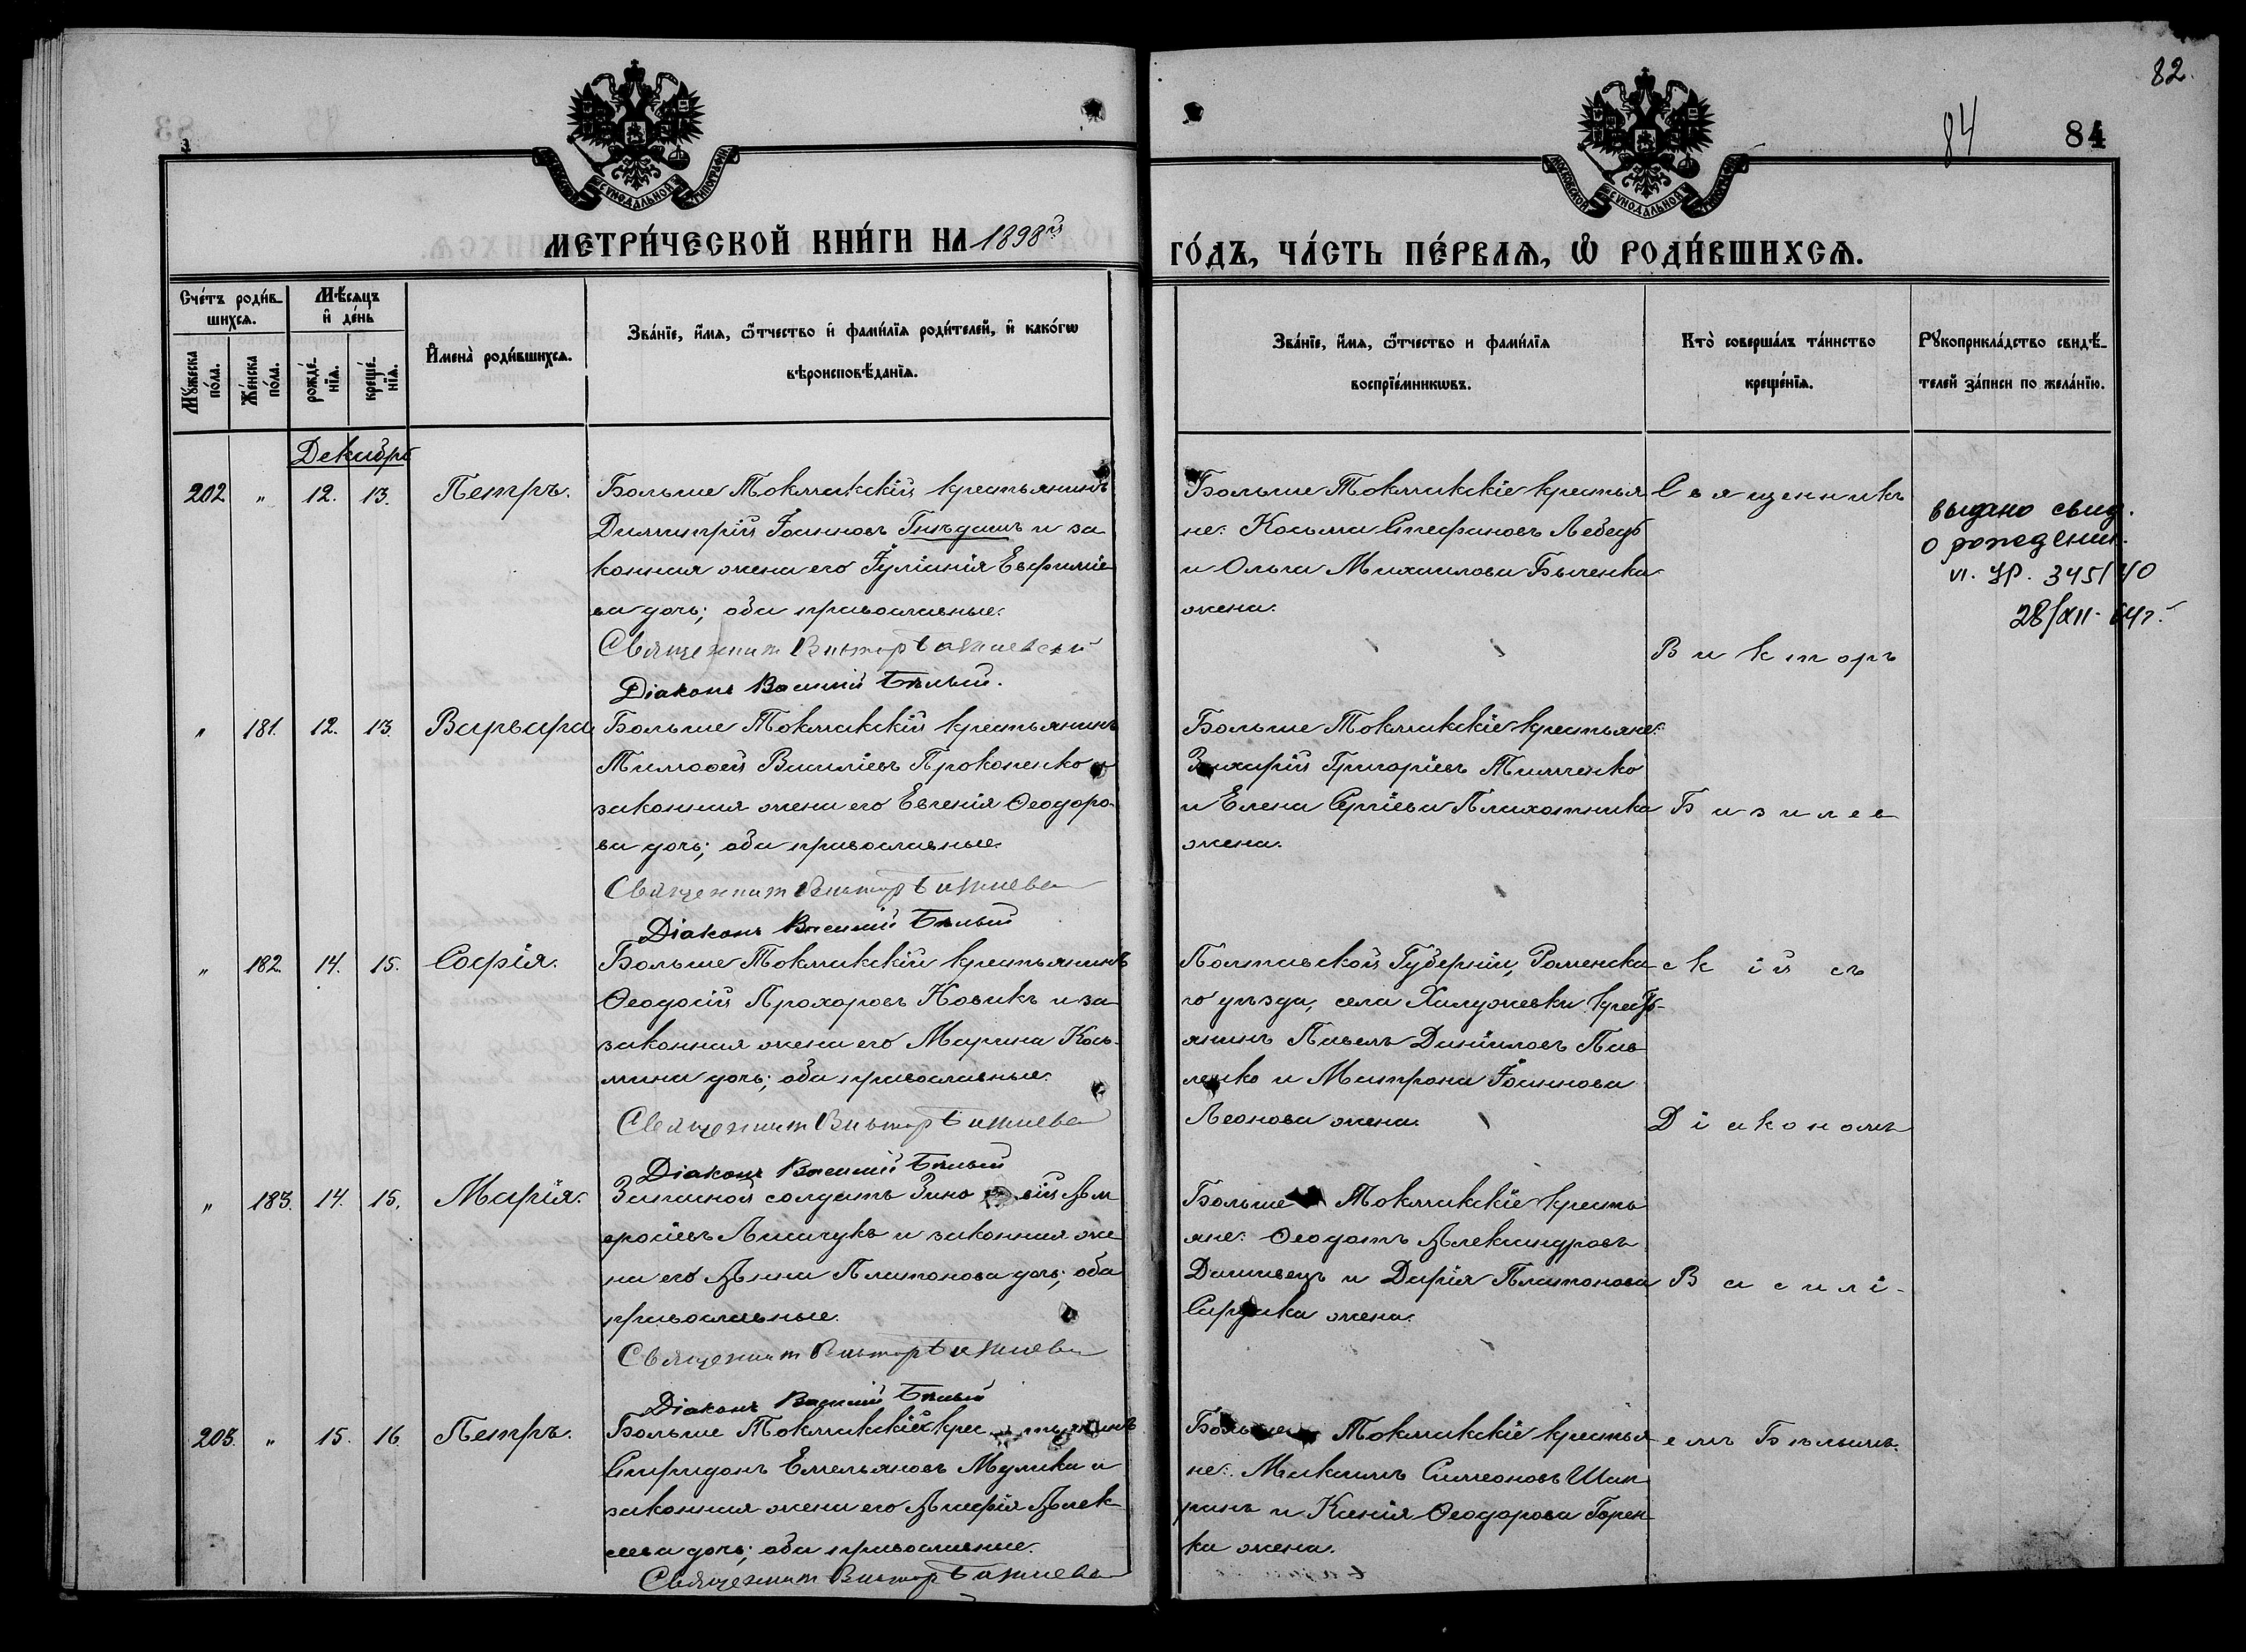 82.
84
84
МОСКОВСКОЙ СУНОДАЛЬНОЙ ТИПОГРАФІИ
МЕТРИ́ЧЕСКОЙ КНИ́ГИ НА 1898й
ГО́ДЪ, ЧА́СТЬ ПЕ́РВАѦ, Ѡ РОДИ́ВШИХСѦ.
Сче́тъ роди́в-
шихсѧ.
Мѣ́сѧцъ
и де́нь
Мꙋ́жеска
по́ла.
Же́нска
по́ла.
рожде́-
нїѧ.
креще́-
нїѧ.
Имена̀ роди́вшихсѧ.
Зва́нїе, и́мѧ, ѻ́тчество и фами́лїѧ роди́телей, и како́гѡ
вѣроисповѣ́данїѧ.
Зва́нїе, и́мѧ, ѻ́тчество и фами́лїѧ
воспрїе́мникѡвъ.
Кто̀ соверша́лъ та́инство
креще́нїѧ.
Рꙋкоприкла́дство свидѣ́-
телей за́писи по жела́нїю.
Декабрь
202 " 12. 13. Петръ.
Больше Токмакскій крестьянинъ
Димитрій Іоанновъ Гнѣдашъ и за
конная жена его Іуліанія Евфиміе
ва дочь; оба православные.
Священник Виктор
Діаконъ Василій Бѣлый.
Больше Токмакскіе крестья
не: Косьма Стефановъ Лебедь
и Ольга Михаилова Быченка
жена.
Священникъ
Викторъ
выдано свид.
о рождении.
VI. УР. 345140
28/XII-64г.
" 181. 12. 13. Варвара
Больше Токмакскій крестьянинъ
Тимоѳей Василіевъ Прокопенко и
законная жена его Евгенія Ѳеодоро-
ва дочь; оба православные.
Священник Виктор
Діаконъ Василій Бѣлый
Больше Токмакскіе крестьяне:
Захарій Григоріевъ Тимченко
и Елена Сергіева Плахотника
жена.
" 182. 14. 15. Софія.
Больше Токмакскій крестьянинъ
Ѳеодосій Прохоровъ Новикъ и за-
законная жена его Марина Кось-
мина дочь; оба православные.
Священник Виктор
Діаконъ Василій Бѣлый
Полтавской Губерніи, Роменска-
го уѣзда, села Хилужевки крест-
янинъ Павелъ Даніиловъ Пав-
ленко и Матрона Іоаннова
Леонова жена.
скій съ
Діакономъ
" 183. 14. 15. Марія.
Запасной солдатъ Зиновій Ам
вросіевъ Лисичукъ и законная же
на его Анна Платонова дочь; оба
православные.
Священник Виктор
Діаконъ Василій Бѣлый
Больше Токмакскіе кресть
яне: Ѳеодотъ Александровъ
и Дарія Платонова
жена.
Василі-
203. " 15. 16. Петръ.
Больше Токмакскій крестьянинъ
Спиридонъ Емельяновъ Мулика и
законная жена его Алек
сева дочь; оба православные.
Священник Виктор
Больше Токмакскіе крестья
не: Максимъ Симеоновъ
и Ксенія Ѳеодорова Горен-
ка жена.
емъ Бѣлымъ.